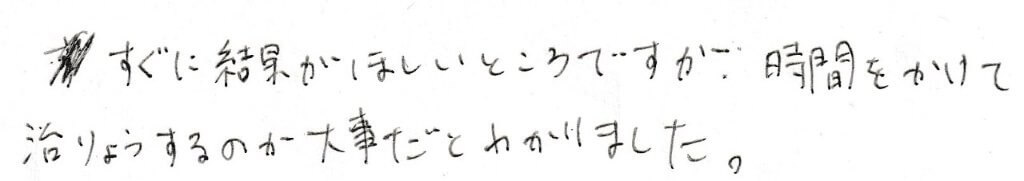 すぐに結果がほしいところですが、時間をかけて
治りょうするのが大事だとわかりました。